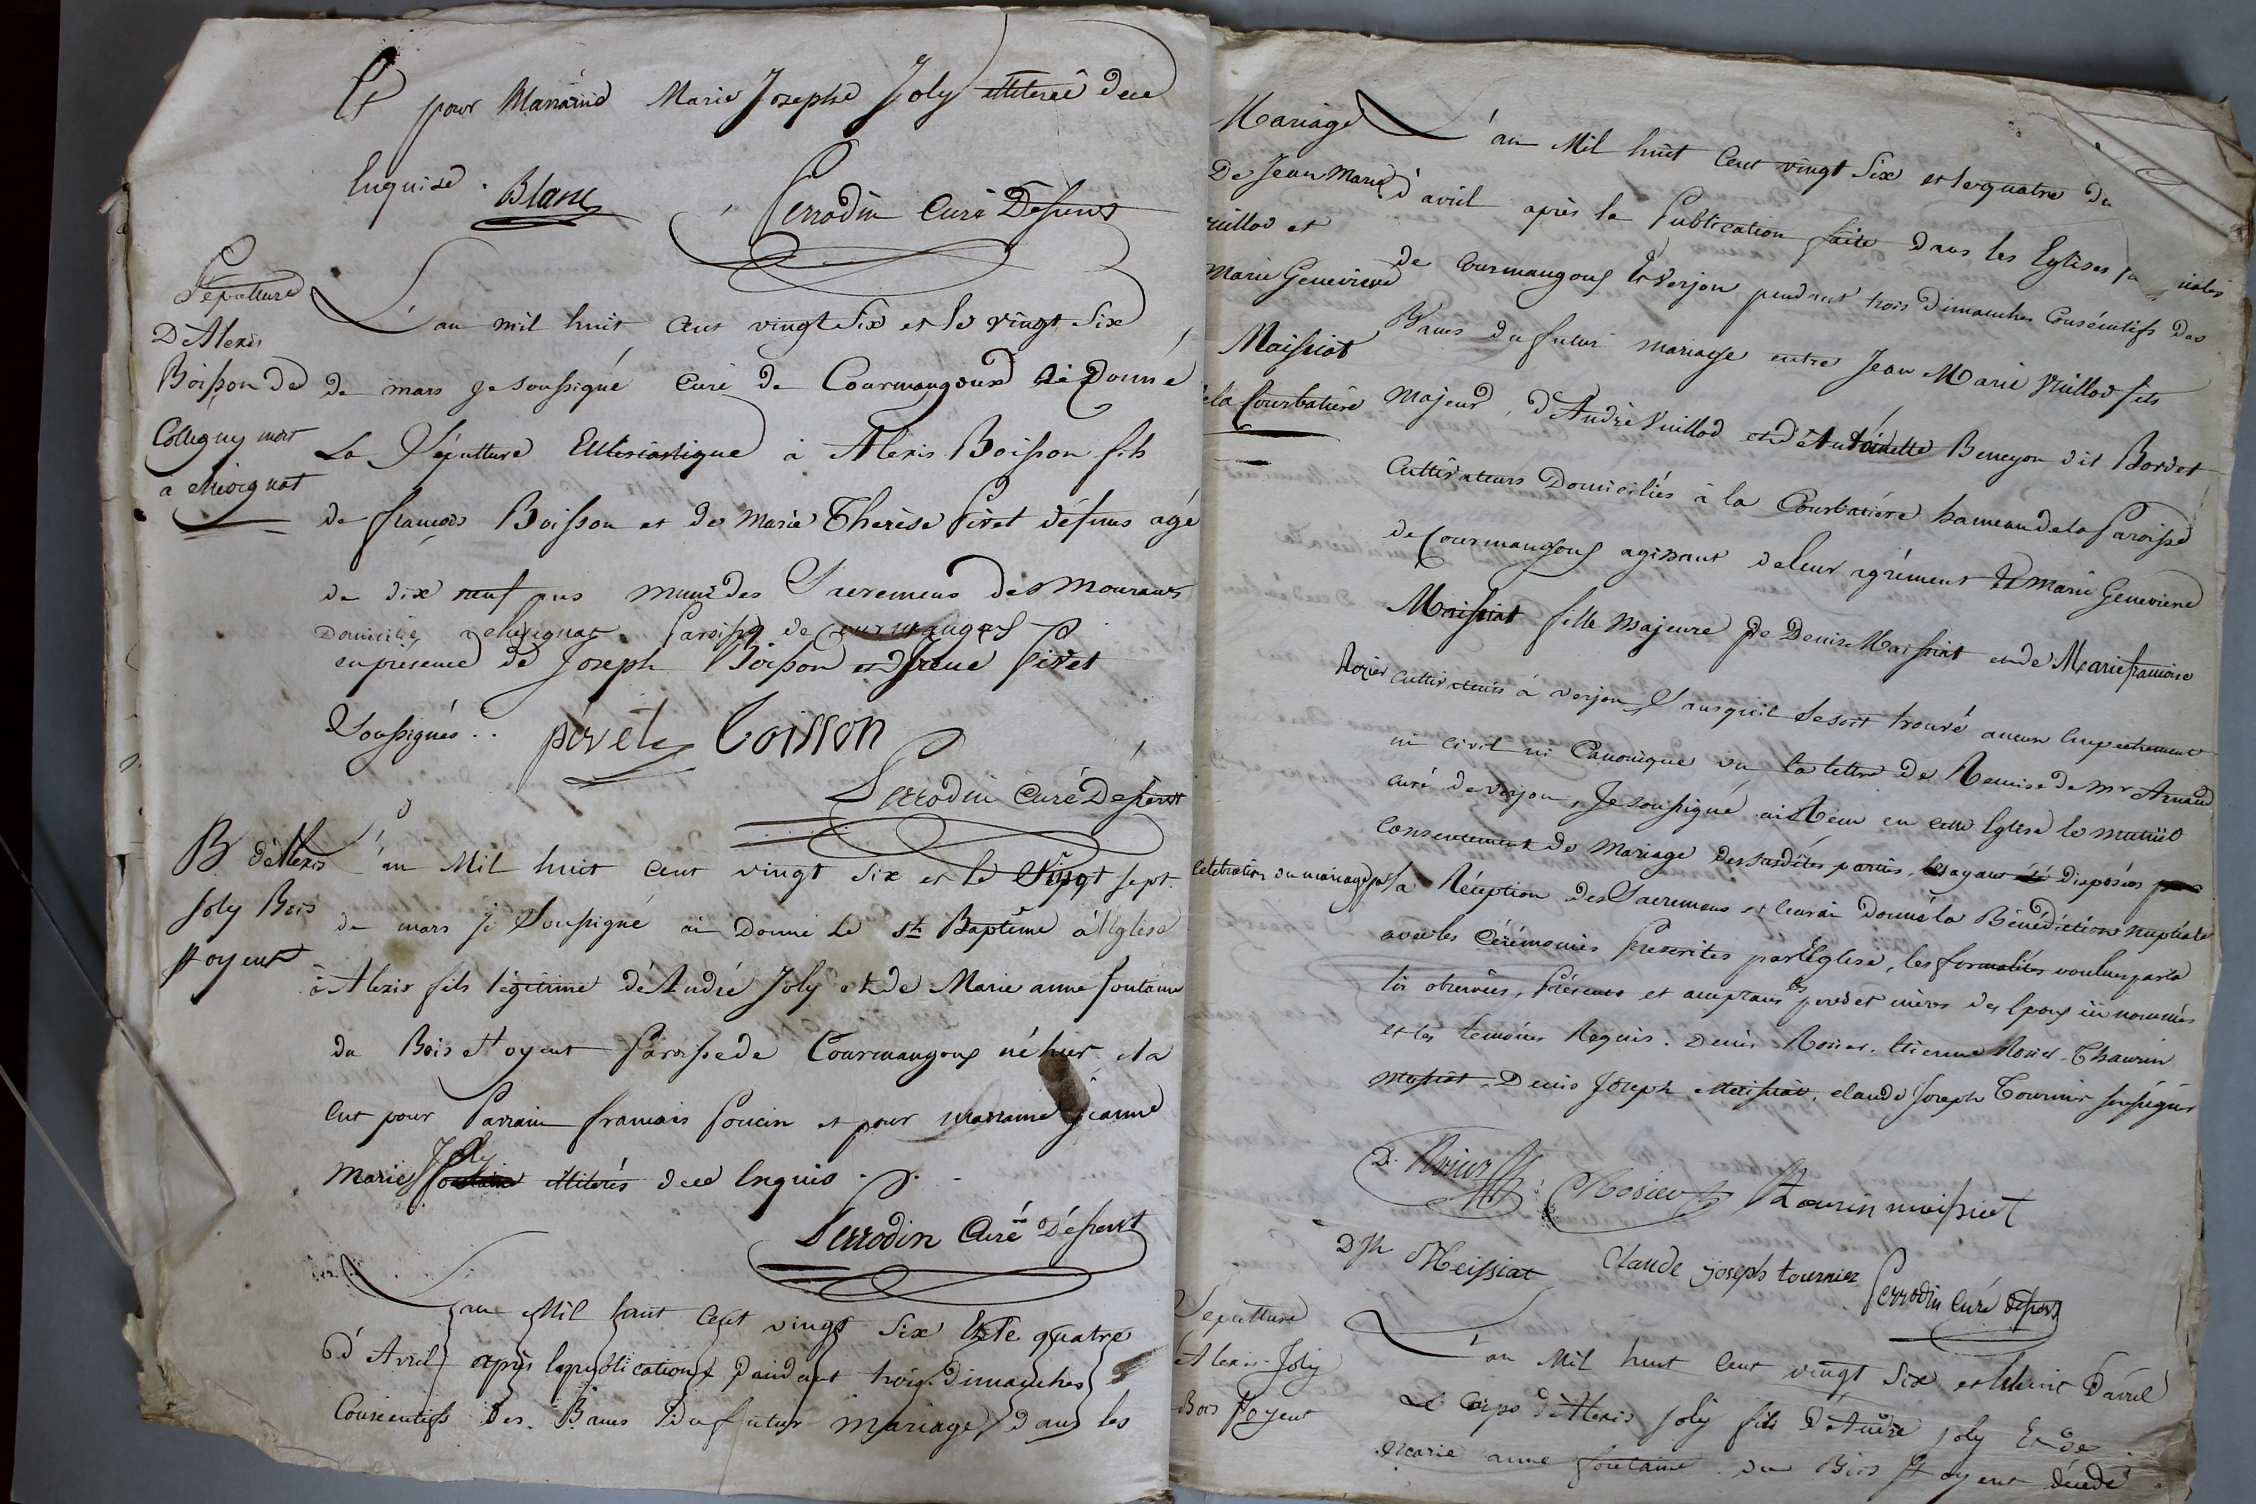 Et pour Marraine Marie Josephe Joly illiterée dece
Enquise. Blanc Perrodin Curé Dessert
Sépulture
D'Alexis
Boisson de
Collegny mort
a chevignat
L'an mil huit cent vingt Six et le vingt Six
de mars je soussigné curé de Courmangoux ai Donné
La Sépulture Ecclésiastique à Alexis Boisson fils
de françois Boisson et de Marie Thérèse Pivet défunts agé
de dix neuf ans muni des Sacremens des Mourans
Domicilié a chevignat Paroisse de Courmangoux
en présence de Joseph Boisson et Pivet
Soussignés.. pivet boisson
Perrodin Curé Dessert
B. d'Alexis
Joly Bois
Hoyent
L'an Mil huit cent vingt Six et le Vingt Sept
de mars je Soussigné ai Donné le St. Baptême à l'Eglise
à Alexis fils légitime d'André Joly et de Marie anne fontaine
du Bois Hoyent Paroisse de Courmangoux né hier il a
Eut pour Parrain francois Poncin et pour marraine jeanne
Joly
Marie illiterés dece Enquis.
Perrodin Curé Dessert
L'an Mil huit Cent vingt Six Et le quatre
d'Avril après la publication pendant trois dimanches
Consecutifs des Bancs du futur mariage dans les
Mariage
De Jean Marie
vuillod et
Marie Genevieve
Maissiat
de la Courbatière
L'an Mil huit Cent vingt Six et le quatre du
d'avril après la Publication faite dans les Eglises
de Courmangoux Et Verjon pendant trois Dimanches Consécutifs des
Bancs du futur mariage entre Jean Marie Vuillod fils
Majeur, d'André Vuillod et d'Antoinette Beneyon dit Bordet
Cultivateurs Domiciliés à la Courbatière hameau de la Paroisse
de Courmangoux agissant de leur agrément Et Marie Genevieve
Maissiat fille Majeure de Denis Maissiat et de Marie francoise
Rozier cultivateurs à Verjon, Sans qu'il se soit trouvé aucun Empechement
ni civil ni Canonique vu la lettre de Remise de Mr Arnaud
curé de Verjon, Je soussigné ai Recu en cette Eglise le mutuel
Consentement de Mariage des susdites parties, les ayant Disposées
celebration du mariage par la Réception des Sacremens et leur ai Donné la Bénédiction nuptiale
avec les Cérémonies Prescrites par l'Eglise, les formalités voulues par la
loi observées, Présens et acceptans les pere et mères des Epoux sus nommés
et les temoins Requis. Denis Rosier, Etienne Rosier, Thaurin
Meissiat, Denis Joseph Meissiat, claude Joseph Tournier soussignés
D. Rosier E. Rosier Thourin meissiat
D Jh Meissiat Claude joseph tournier Perrodin Curé Dessert
Sépulture
Alexis Joly
Bois Hoyent
L'an Mil huit Cent vingt Six et le huit D'avril
Le Corps d'Alexis Joly fils d'André Joly Et de
Marie anne fontaine du Bois Hoyent décédé